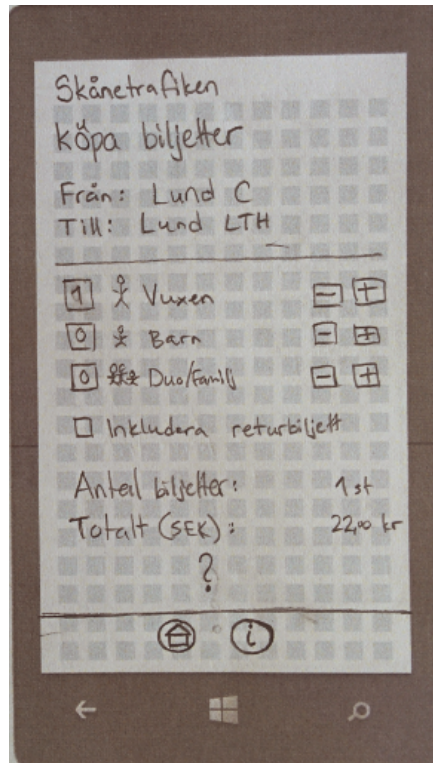 Skånetrafiken
köpa biljetter
Från: Lund C
Till: Lund LTH
1 Vuxen - +
0 Barn - +
0 Duo/Familj - +
Inkludera returbiljett
Antal biljetter: 1 st
Totalt (SEK): 22,00 kr
?
i